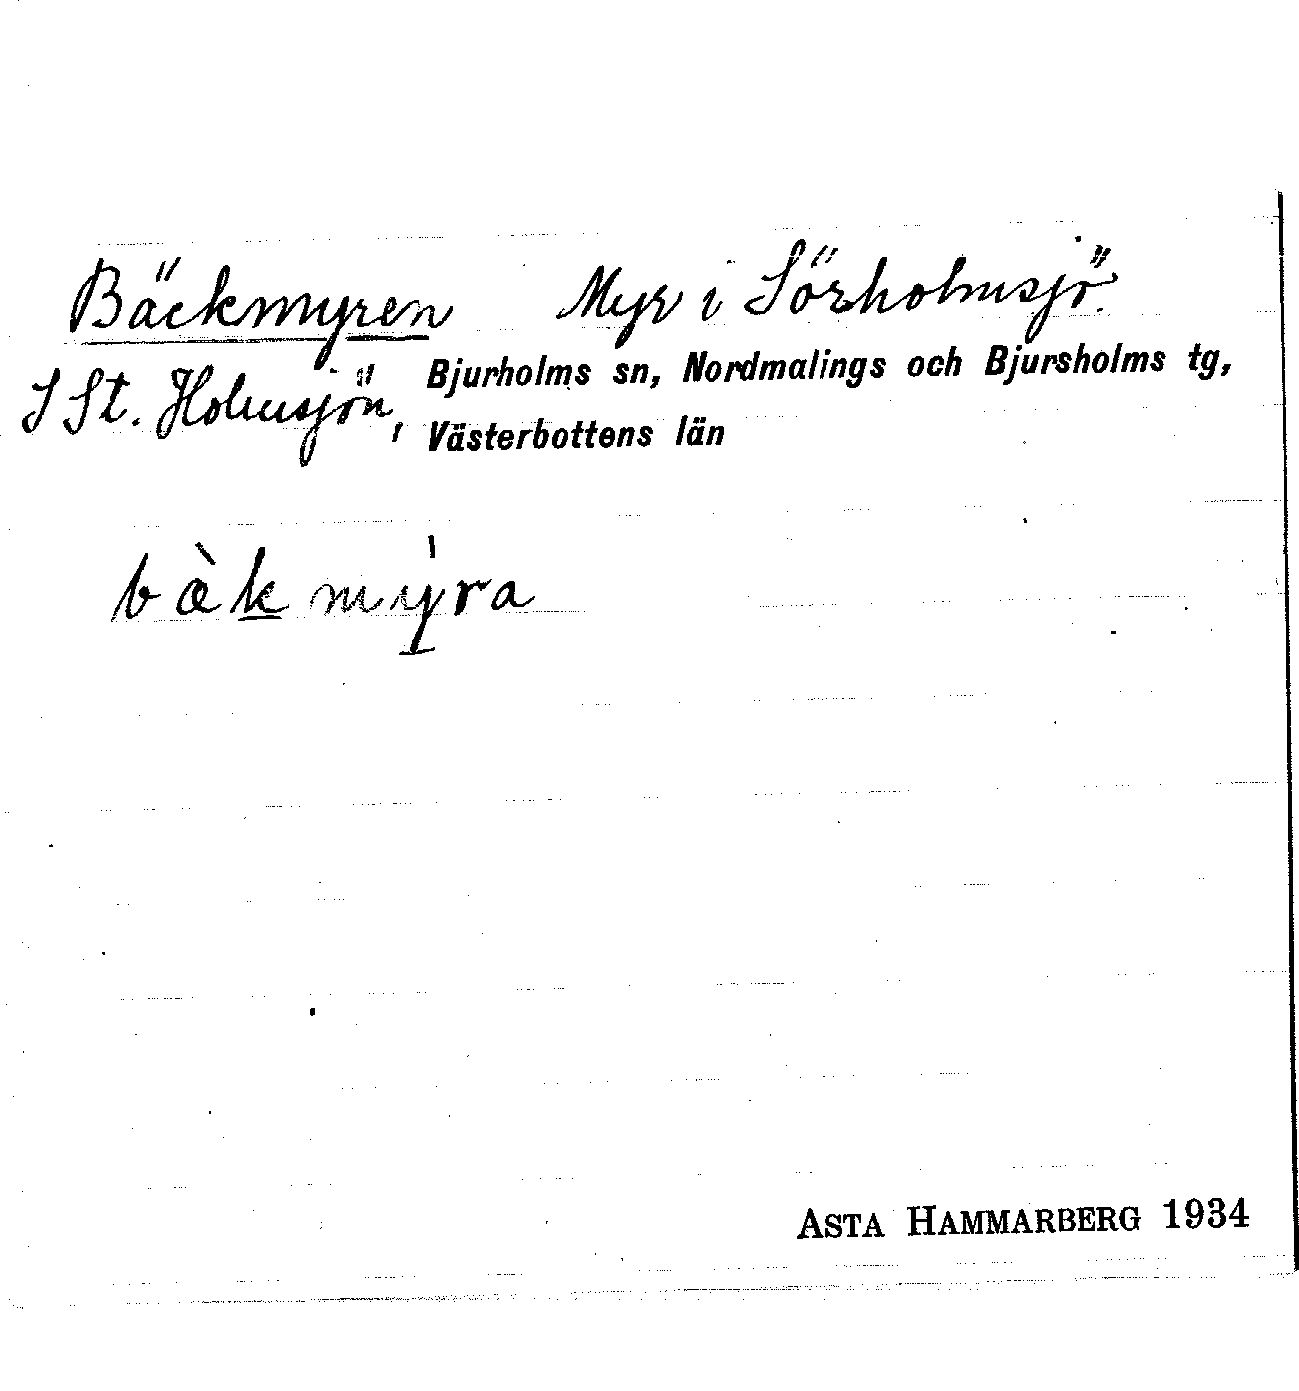 Bäckmyren Myr i Sörholmsjö.
I St. Holmsjön, Bjurholms sn, Nordmalings och Bjursholms tg,
Västerbottens län
bæ̀kmýra
ASTA HAMMARBERG 1934